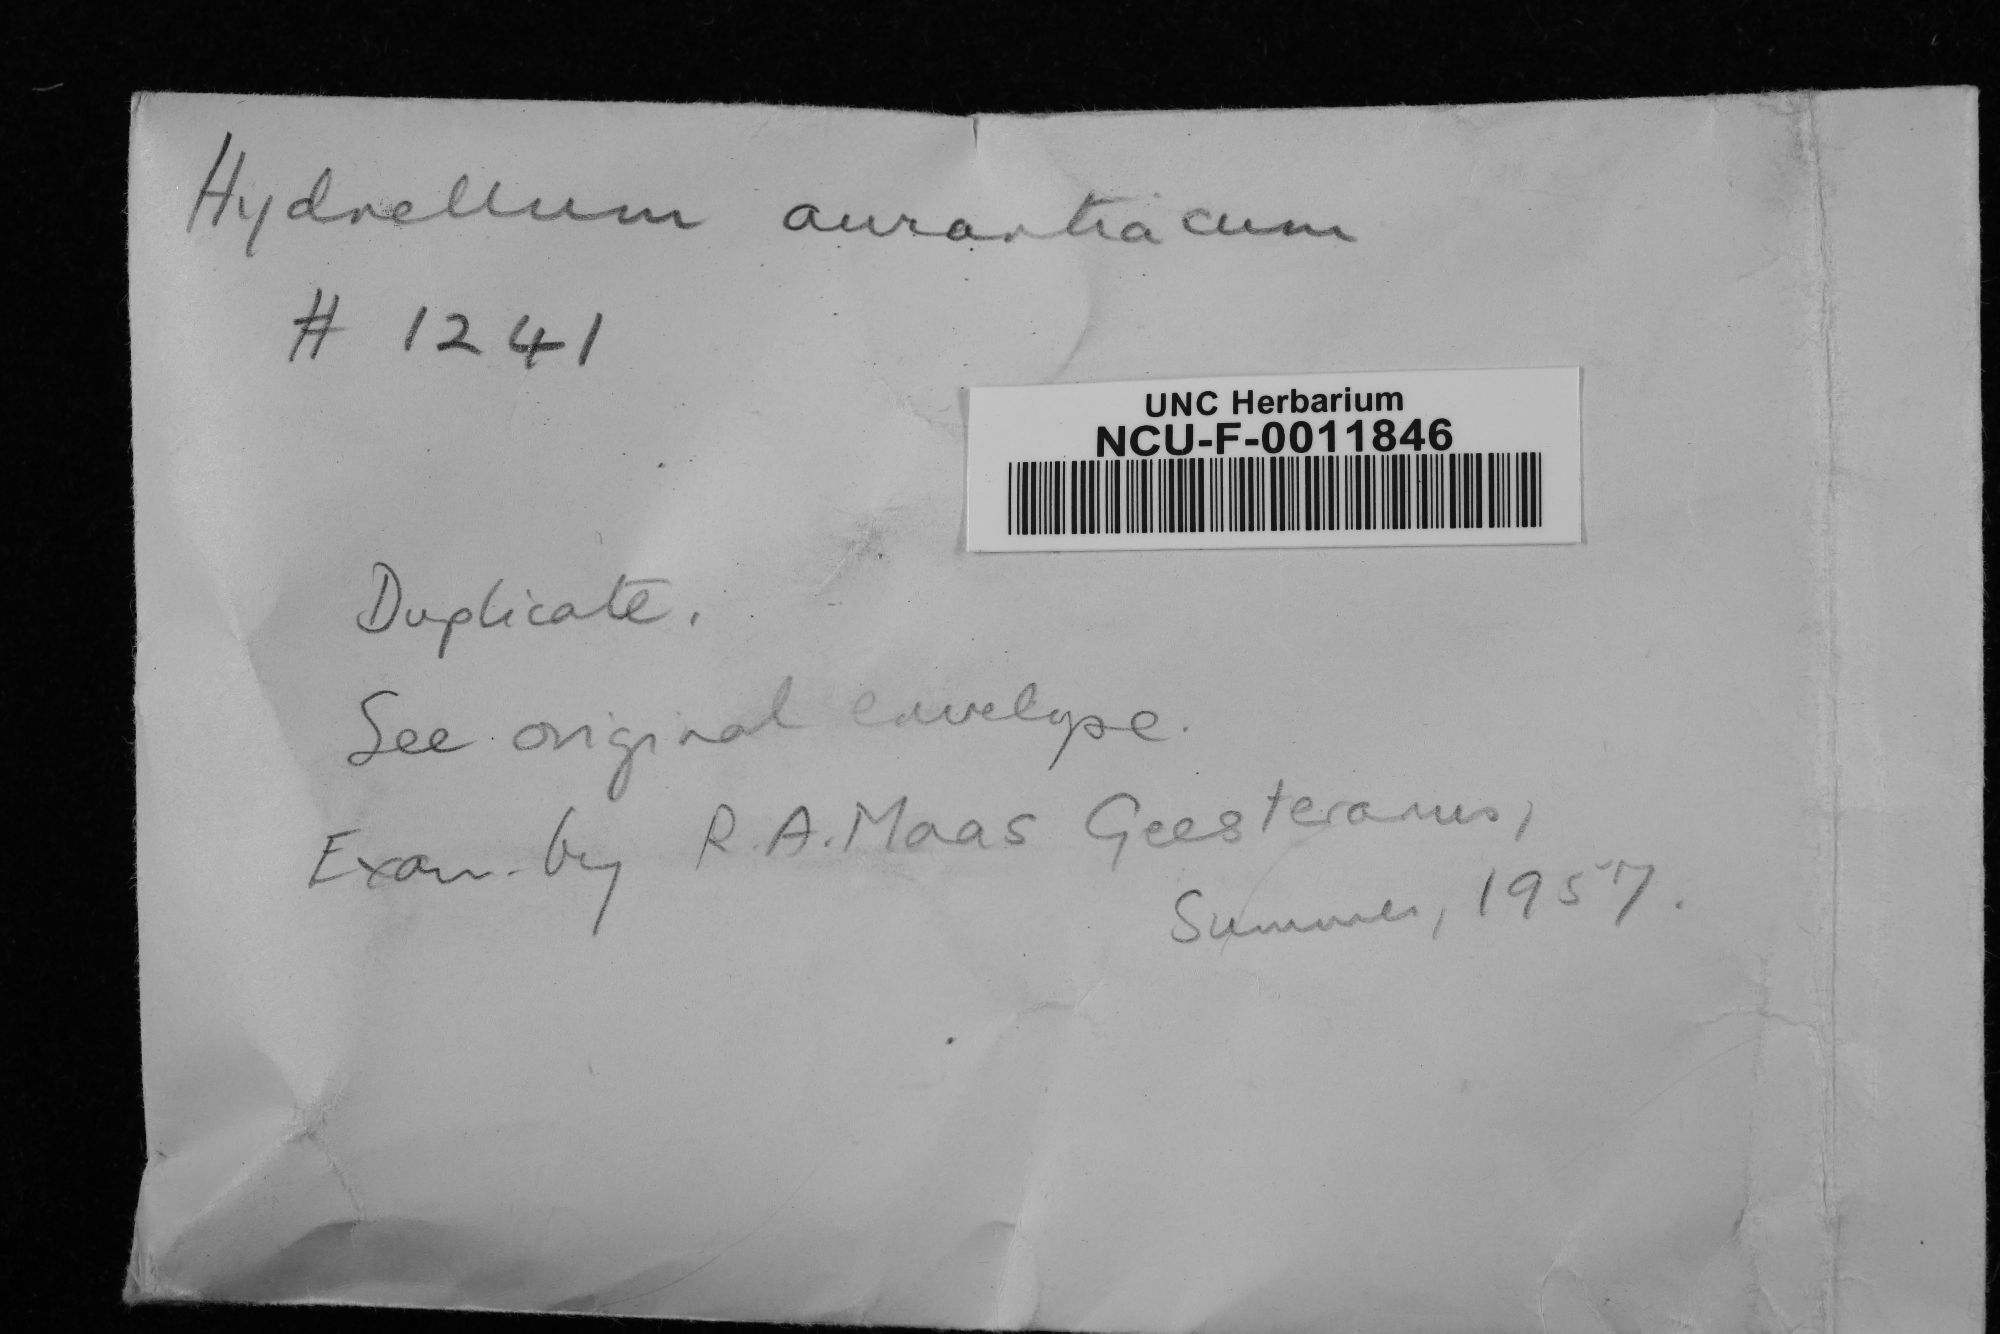 Hydnellum aurantiacum
# 1241
UNC Herbarium
NCU-F-0011846
Duplicate.
See original envelope.
Exam. by R.A. Maas Geesteranus,
Summer, 1957.